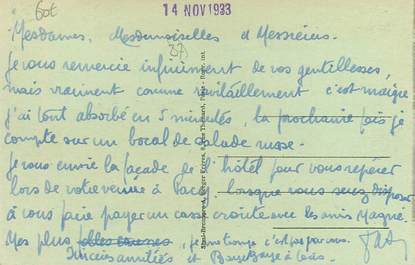 14 NOV 1933
60t
37
Mesdames, Mesdemoiselles & Messieurs.
Je vous remercie infiniment de vos gentillesses,
mais vraiment comme ravitaillement c'est maigre
j'ai tout absorbé en 5 minutes, la prochaine fois je
compte sur un bocal de salade russe.
Je vous envoie la façade de l'hôtel pour vous repérer
lors de votre venue à lorsque vous serez disposé
à vous faire payer un casse croûte avec les amis
Mes plus je me trompe c'est pas pour vous.
Sincères amitiés et à tous.